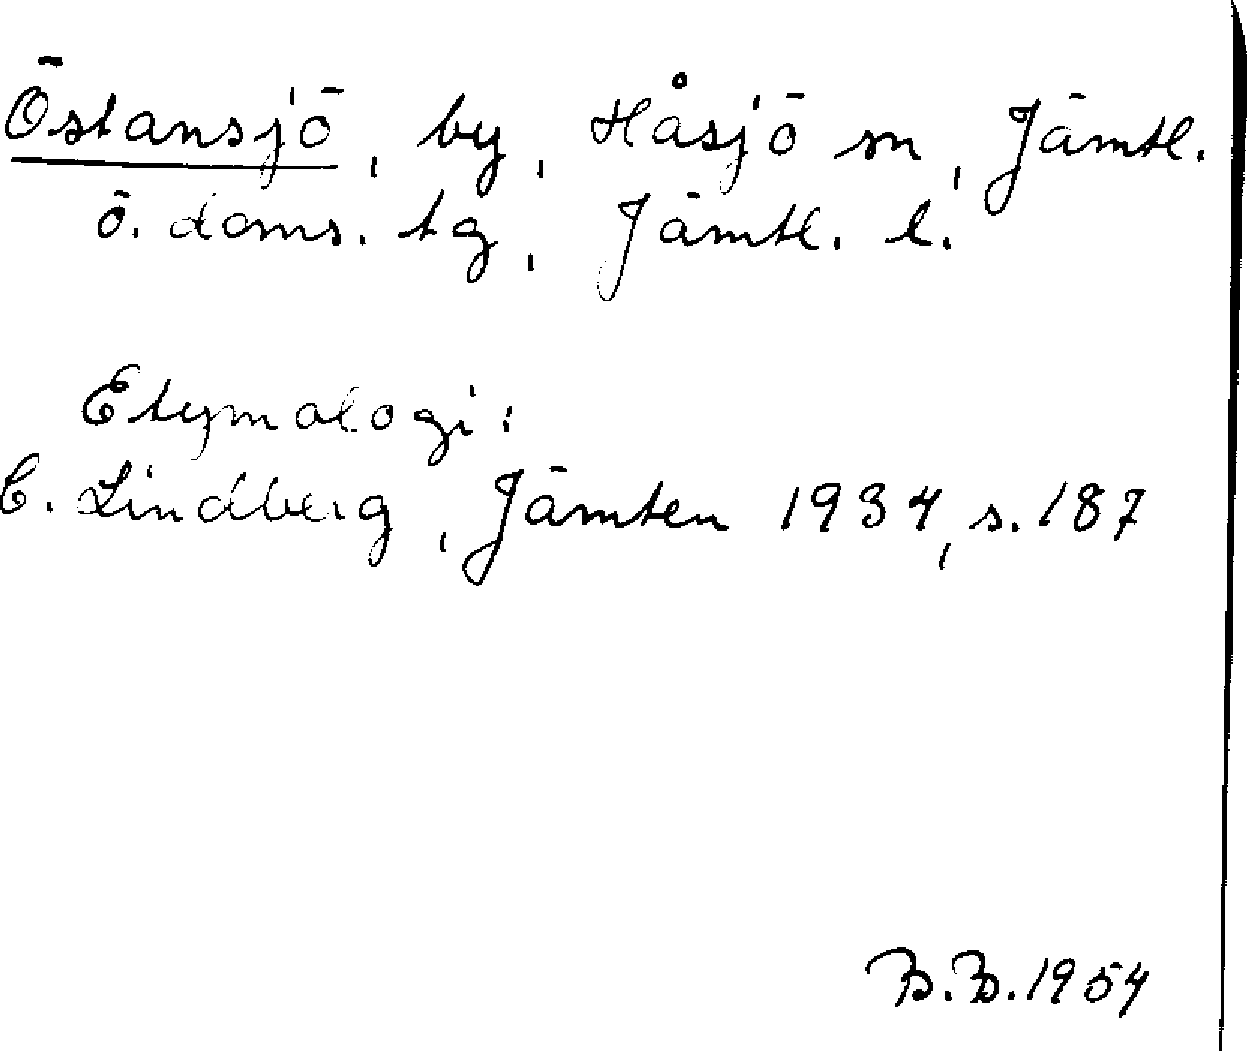 Östansjö, by, Håsjö sn, Jämtl.
ö. doms. tg, Jämtl. l.
Etymologi:
C. Lindberg, Jämten 1934, s. 187
B.B. 1954